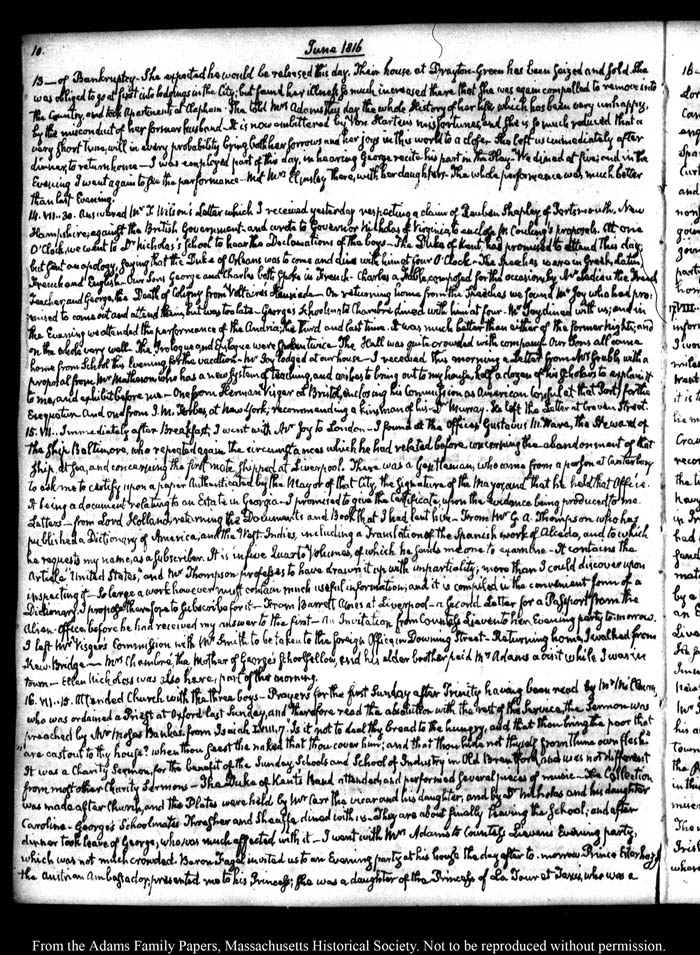 10.
June 1816
13— of Bankruptcy. She expected he would be released this day. Their house at Drayton-Green has been seized and sold. She
was obliged to go at first into lodgings in the City, but found her illness so much increased there that she was again compelled to remove into
the Country, and took apartments at Clapham. She told Mrs Adams this day the whole History of her life, which has been very unhappy,
by the misconduct of her former husband. It is now embittered by Von Harten's misfortunes, and she is so much reduced that a
very short time, will in every probability bring both her sorrows and her joys in this world to a close. She left us immediately after
dinner, to return home — I was employed part of this day, in hearing George recite his part in the Play. We dined at five; and in the
Evening I went again to see the performance — Met Mrs there, with her daughters. The whole performance was much better
than last Evening.
14. VII.-30. Answered Mr T. Wilson's Letter which I received yesterday respecting a claim of Reuben Shapley of Portsmouth, New
Hampshire, against the British Government, and wrote to Governor Nicholas of Virginia, to enclose Mr Conling's proposals. At one
O'Clock, we went to Dr Nicholas's School to hear the Declamations of the boys — The Duke of Kent had promised to attend this day;
but sent an apology, saying that the Duke of Orleans was to come and dine with him at four O'Clock — The Speeches were in Greek, Latin,
French and English. Our Sons George and Charles both spoke in French — Charles a Fable, composed for the occasion by Mr the French
Teacher, and George, the Death of Coligny from Voltaire's Henriade — On returning home from the Speeches we found Mr Joy who had pro-
mised to come out and attend them, but was too late. George's Schoolmate Chambré dined with him at four. Mr Joy dined with us; and in
the Evening we attended the performance of the Andria, the third and last time. It was much better than either of the former nights; and
on the whole very well. The Prologue and Epilogue were spoken twice. The Hall was quite crowded with company. Our Sons all came
home from School this Evening, for the vacation — Mr Joy lodged at our house — I received this morning a Letter from Mr Grabb, with a
proposal from Mr Matheson, who has a new System of teaching, and wishes to bring out to my house, half a dozen of his Scholars to explain it
to me, and exhibit before me — One from Herman Visger at Bristol, enclosing his Commission as American Consul at that Port, for the
Exequatur. And one from J. M. Forbes, at New York, recommending a kinsman of his — Dr Murray. He left the Letter at Craven Street.
15. VII.. Immediately after Breakfast, I went with Mr Joy to London — I found at the Office, Gustavus M. Ware, the Steward of
the Ship Baltimore, who repeated again the circumstances which he had related before, concerning the abandonment of that
Ship, at Sea, and concerning the first mate, shipped at Liverpool. There was a Gentleman, who came from a person at Canterbury
to ask me to certify upon a paper Authenticated by the Mayor of that City, the Signature of the Mayor, and that he held that Office.
It being a document relating to an Estate in Georgia — I promised to give the Certificate, upon the evidence being produced to me.
Letters — from Lord Holland, returning the Documents and Book that I had lent him — From Mr G. A. Thompson, who has
published a Dictionary of America, and the West-Indies, including a Translation of the Spanish work of Alcedo, and to which
he requests my name, as a Subscriber. It is in five Quarto Volumes, of which he sends me one to examine — It contains the
Article United States, and Mr Thompson professes to have drawn it up with impartiality, more than I could discover upon
inspecting it. So large a work however must contain much useful information, and it is compiled in the convenient form of a
Dictionary. I propose therefore to subscribe for it — From Barrett Ames at Liverpool — a Second Letter for a Passport from the
Alien-Office before he had received my answer to the first — An Invitation from Countess Lieven to her Evening party to-morrow.
I left Mr Visger's Commission with Mr Smith to be taken to the foreign Office, in Downing Street. Returning home, I walked from
Kew-Bridge — Mrs Chambré the Mother of George's Schoolfellow, and his elder brother paid Mrs Adams a visit while I was in
town — Ellen Nicholas was also here, part of the morning.
16. VII.-15. Attended Church with the three boys — Prayers for the first Sunday after Trinity having been read by Mr
who was ordained a Priest at Oxford last Sunday, and therefore read the absolution with the rest of the Service, the Sermon was
preached by Mr Moses Bankes from Isaiah LVIII. 7. "Is it not to deal thy bread to the hungry, and that thou bring the poor that
"are cast out to thy house? when thou seest the naked that thou cover him; and that thou hide not thyself from thine own flesh."
It was a Charity Sermon, for the benefit of the Sunday Schools and School of Industry in Old Brentford, and was not different
from most other Charity Sermons — The Duke of Kent's Band attended, and performed several pieces of music — The Collection
was made after Church, and the Plates were held by Mr Carr the vicar and his daughter, and by Dr Nicholas and his daughter
Caroline. George's Schoolmates Thrasher and Sheaffe, dined with us — They are about finally leaving the School; and after
dinner took leave of George, who was much affected with it — I went with Mrs Adams to Countess Lieven's Evening party;
which was not much crowded. Baron Fagel invited us to an Evening party at his house the day after to-morrow. Prince Esterhazy
the Austrian Ambassador, presented me to his Princess; She was a daughter of the Princess of La Tour et Taxis, who was a
From the Adams Family Papers, Massachusetts Historical Society. Not to be reproduced without permission.